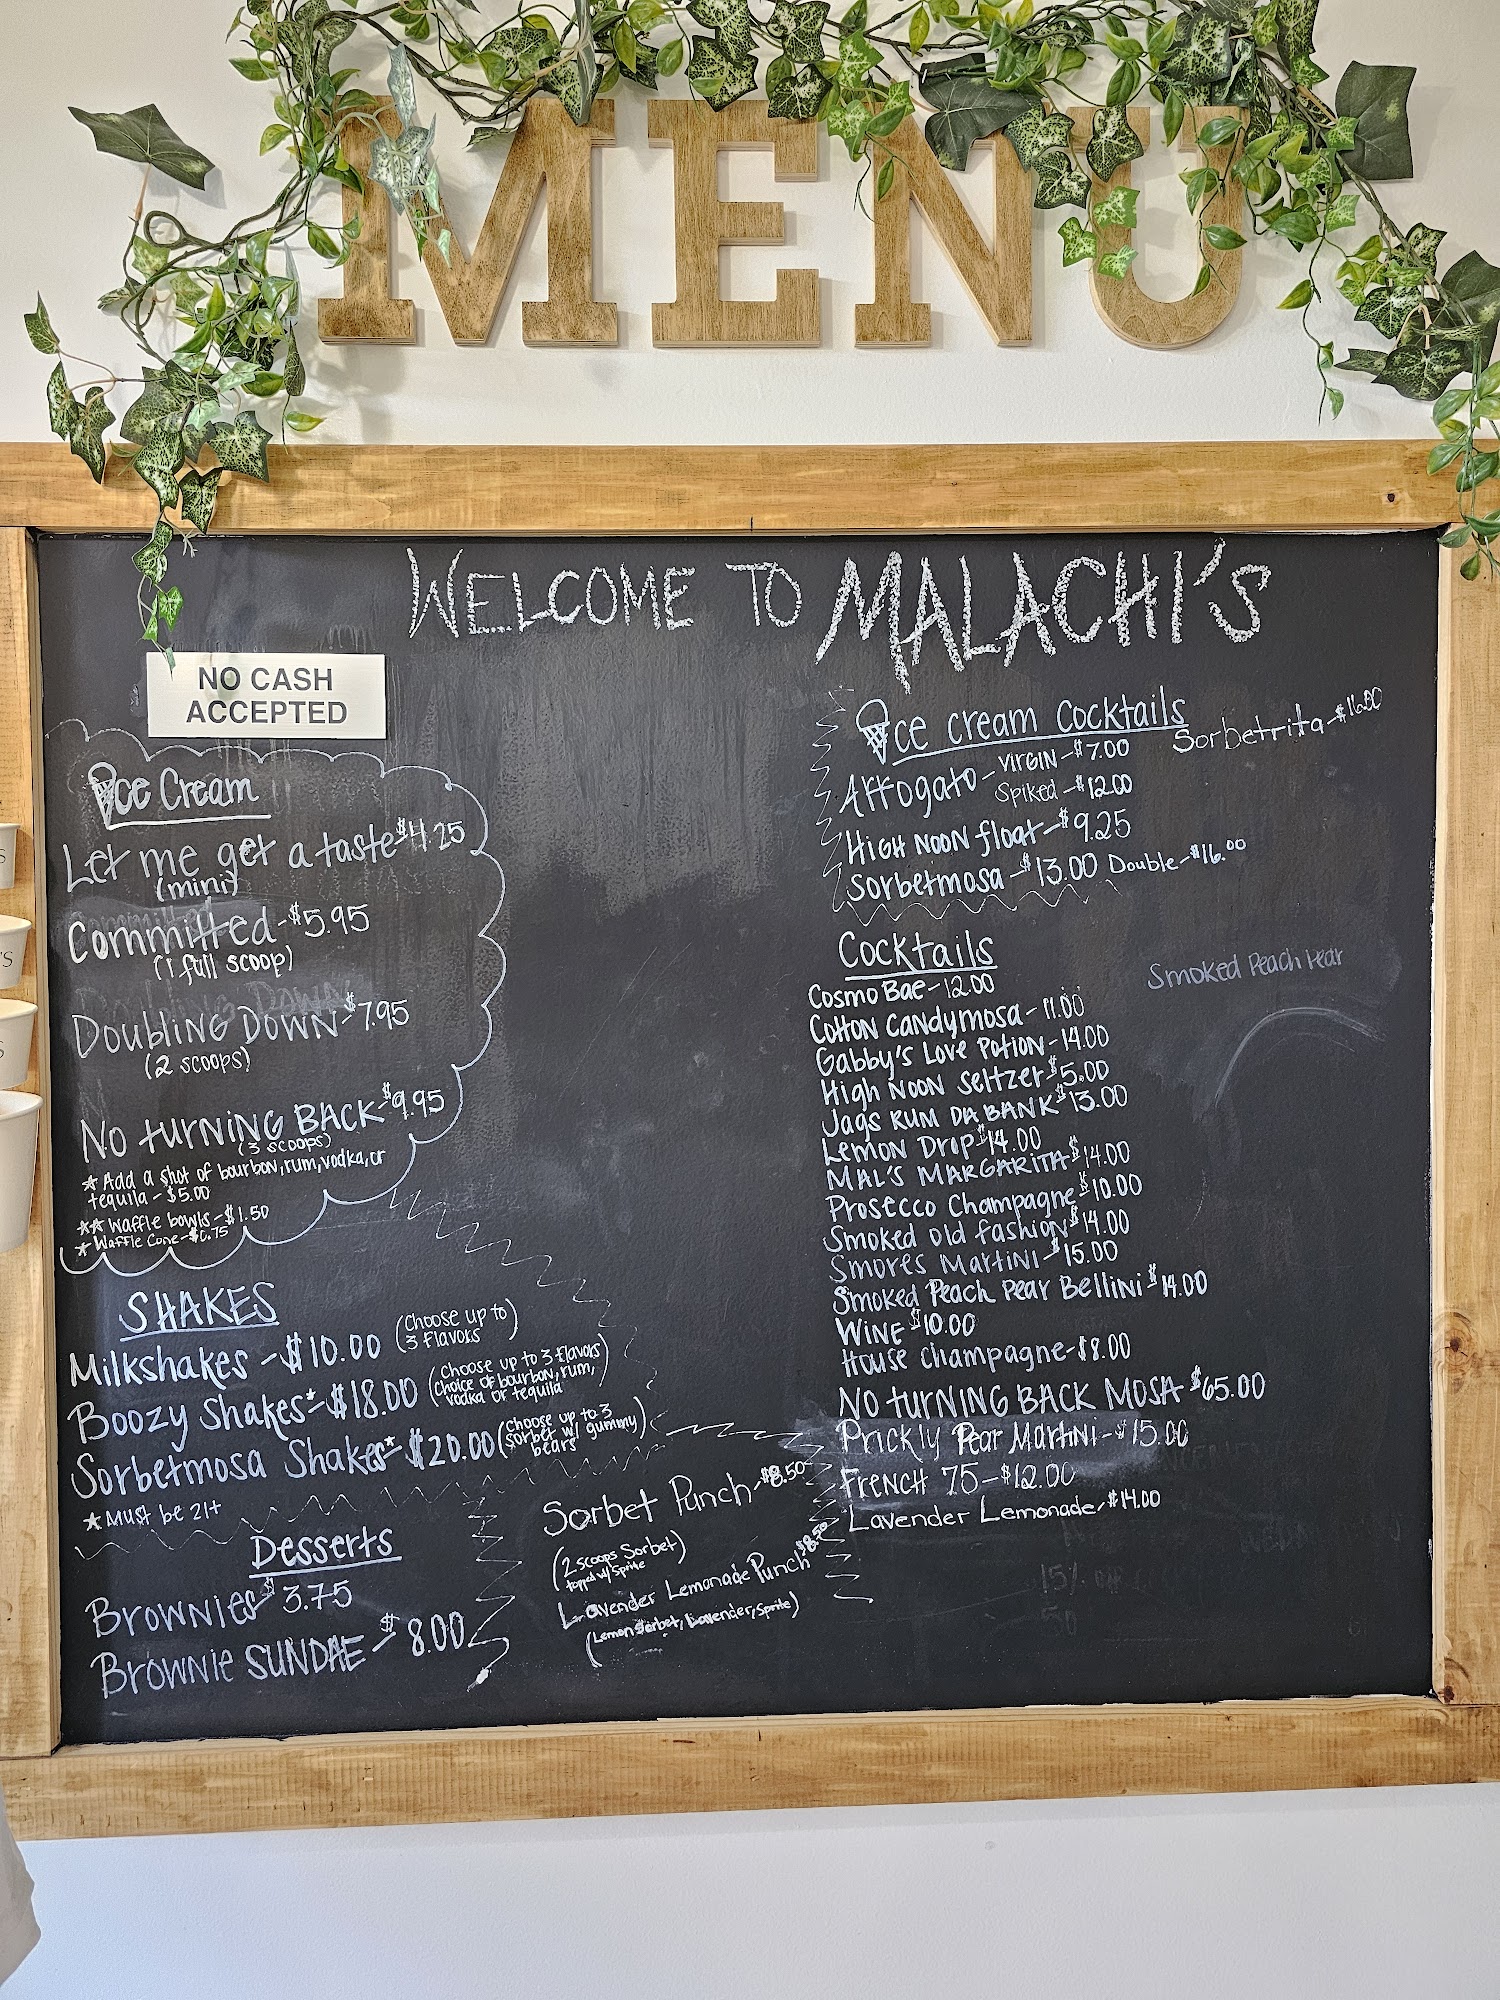 MENU
WELCOME TO MALACHI'S
NO CASH
ACCEPTED
Ice Cream
Let me get a taste $4.25
(mini)
Committed - $5.95
(1 full scoop)
Doubling Down - $7.95
(2 scoops)
No turning BACK - $9.95
(3 scoops)
* Add a shot of bourbon, rum, vodka, or
tequila - $5.00
** Waffle bowls - $1.50
* Waffle Cone - $0.75
SHAKES
Milkshakes - $10.00 (Choose up to
3 flavors)
Boozy Shakes* - $18.00 (Choose up to 3 flavors
choice of bourbon, rum,
vodka or tequila)
Sorbetmosa Shakes* - $20.00 (Choose up to 3
sorbet w/ gummy
bears)
* Must be 21+
Desserts
Brownies $3.75
Brownie SUNDAE - $8.00
Sorbet Punch - $8.50
(2 scoops Sorbet)
topped w/ Sprite
Lavender Lemonade Punch $8.50
(Lemon Sorbet, Lavender, Sprite)
Ice cream Cocktails
Sorbetrita - $16.00
Affogato - VIRGIN - $7.00
Spiked - $12.00
HIGH NOON float - $9.25
Sorbetmosa - $13.00 Double - $16.00
Cocktails
Smoked Peach Pear
Cosmo Bae - 12.00
Cotton Candymosa - 11.00
Gabby's Love Potion - 14.00
High Noon Seltzer $5.00
Jags RUM DA BANK $13.00
Lemon Drop $14.00
MAL'S MARGARITA $14.00
Prosecco Champagne $10.00
Smoked old fashion $14.00
Smores Martini - $15.00
Smoked Peach Pear Bellini $14.00
WINE $10.00
House Champagne - $8.00
NO turning BACK MOSA $65.00
Prickly Pear Martini - $15.00
FRENCH 75 - $12.00
Lavender Lemonade - $14.00